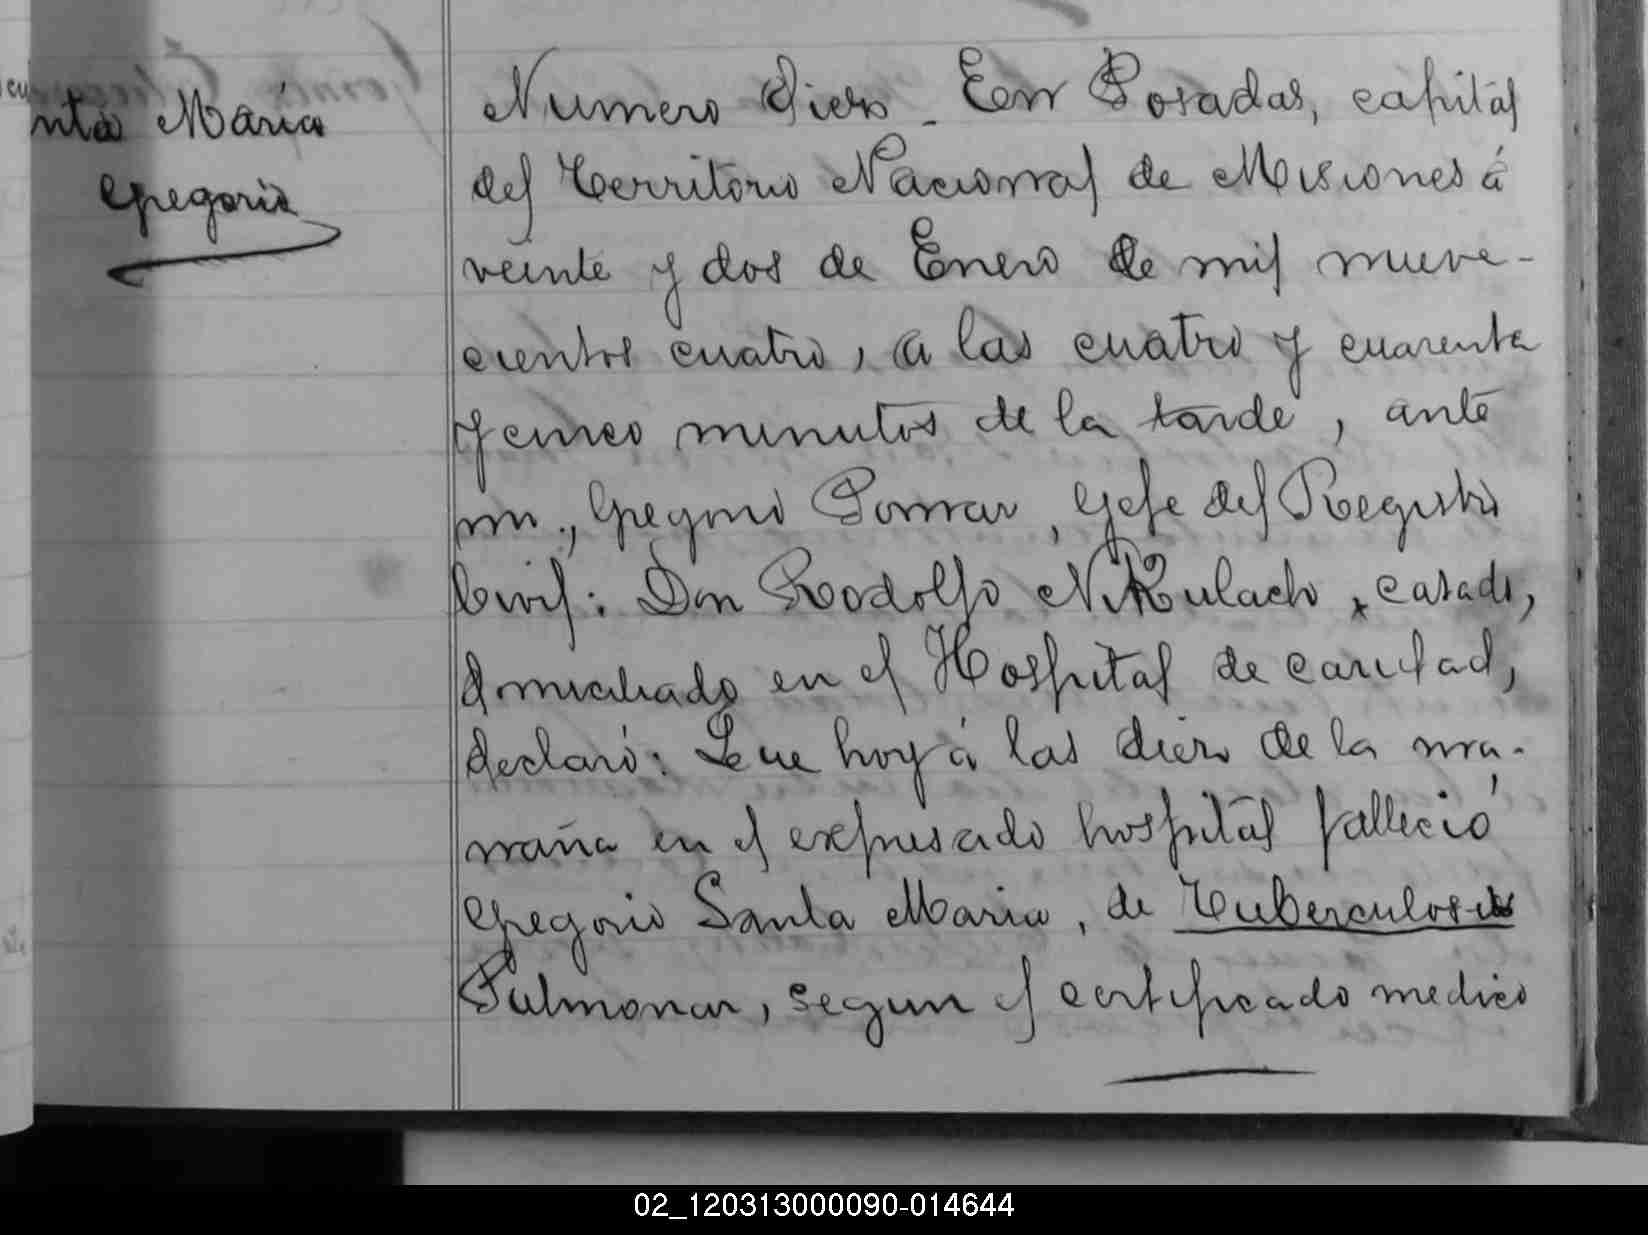 nta Maria
Gregorio
Numero diez. En Posadas, capital
del Territorio Nacional de Misiones á
veinte y dos de Enero de mil nueve-
cientos cuatro, a las cuatro y cuarenta
y cinco minutos de la tarde, ante
mi, Gregorio Pomar, Gefe del Registro
Civil: Don Rodolfo N. Kulach, casado,
domiciliado en el Hospital de caridad,
declaró: Que hoy á las diez de la ma-
ñana en el expresado hospital falleció
Gregorio Santa Maria, de Tuberculosis
Pulmonar, segun el certificado medico
02_120313000090-014644